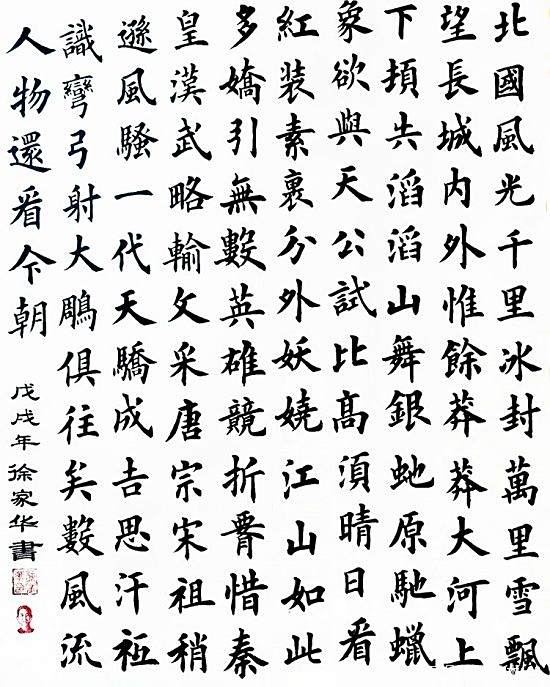 北國風光千里冰封萬里雪飄
望長城内外惟餘莽莽大河上
下頓失滔滔山舞銀蛇原馳蠟
象欲與天公試比高須晴日看
紅装素裹分外妖嬈江山如此
多嬌引無數英雄競折腰惜秦
皇漢武略輸文采唐宗宋祖稍
遜風騷一代天驕成吉思汗衹
識彎弓射大鵰俱往矣數風流
人物還看今朝
戊戌年徐家华書